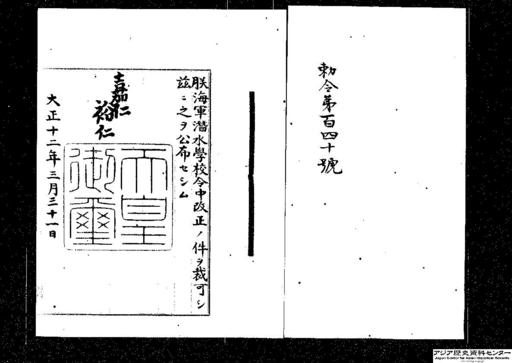 勅令第百四十號
朕海軍潜水學校令中改正ノ件ヲ裁可シ
茲ニ之ヲ公布セシム
嘉仁
裕仁
天皇
御璽
大正十二年三月三十一日
アジア歴史資料センター
Japan Center for Asian Historical Records